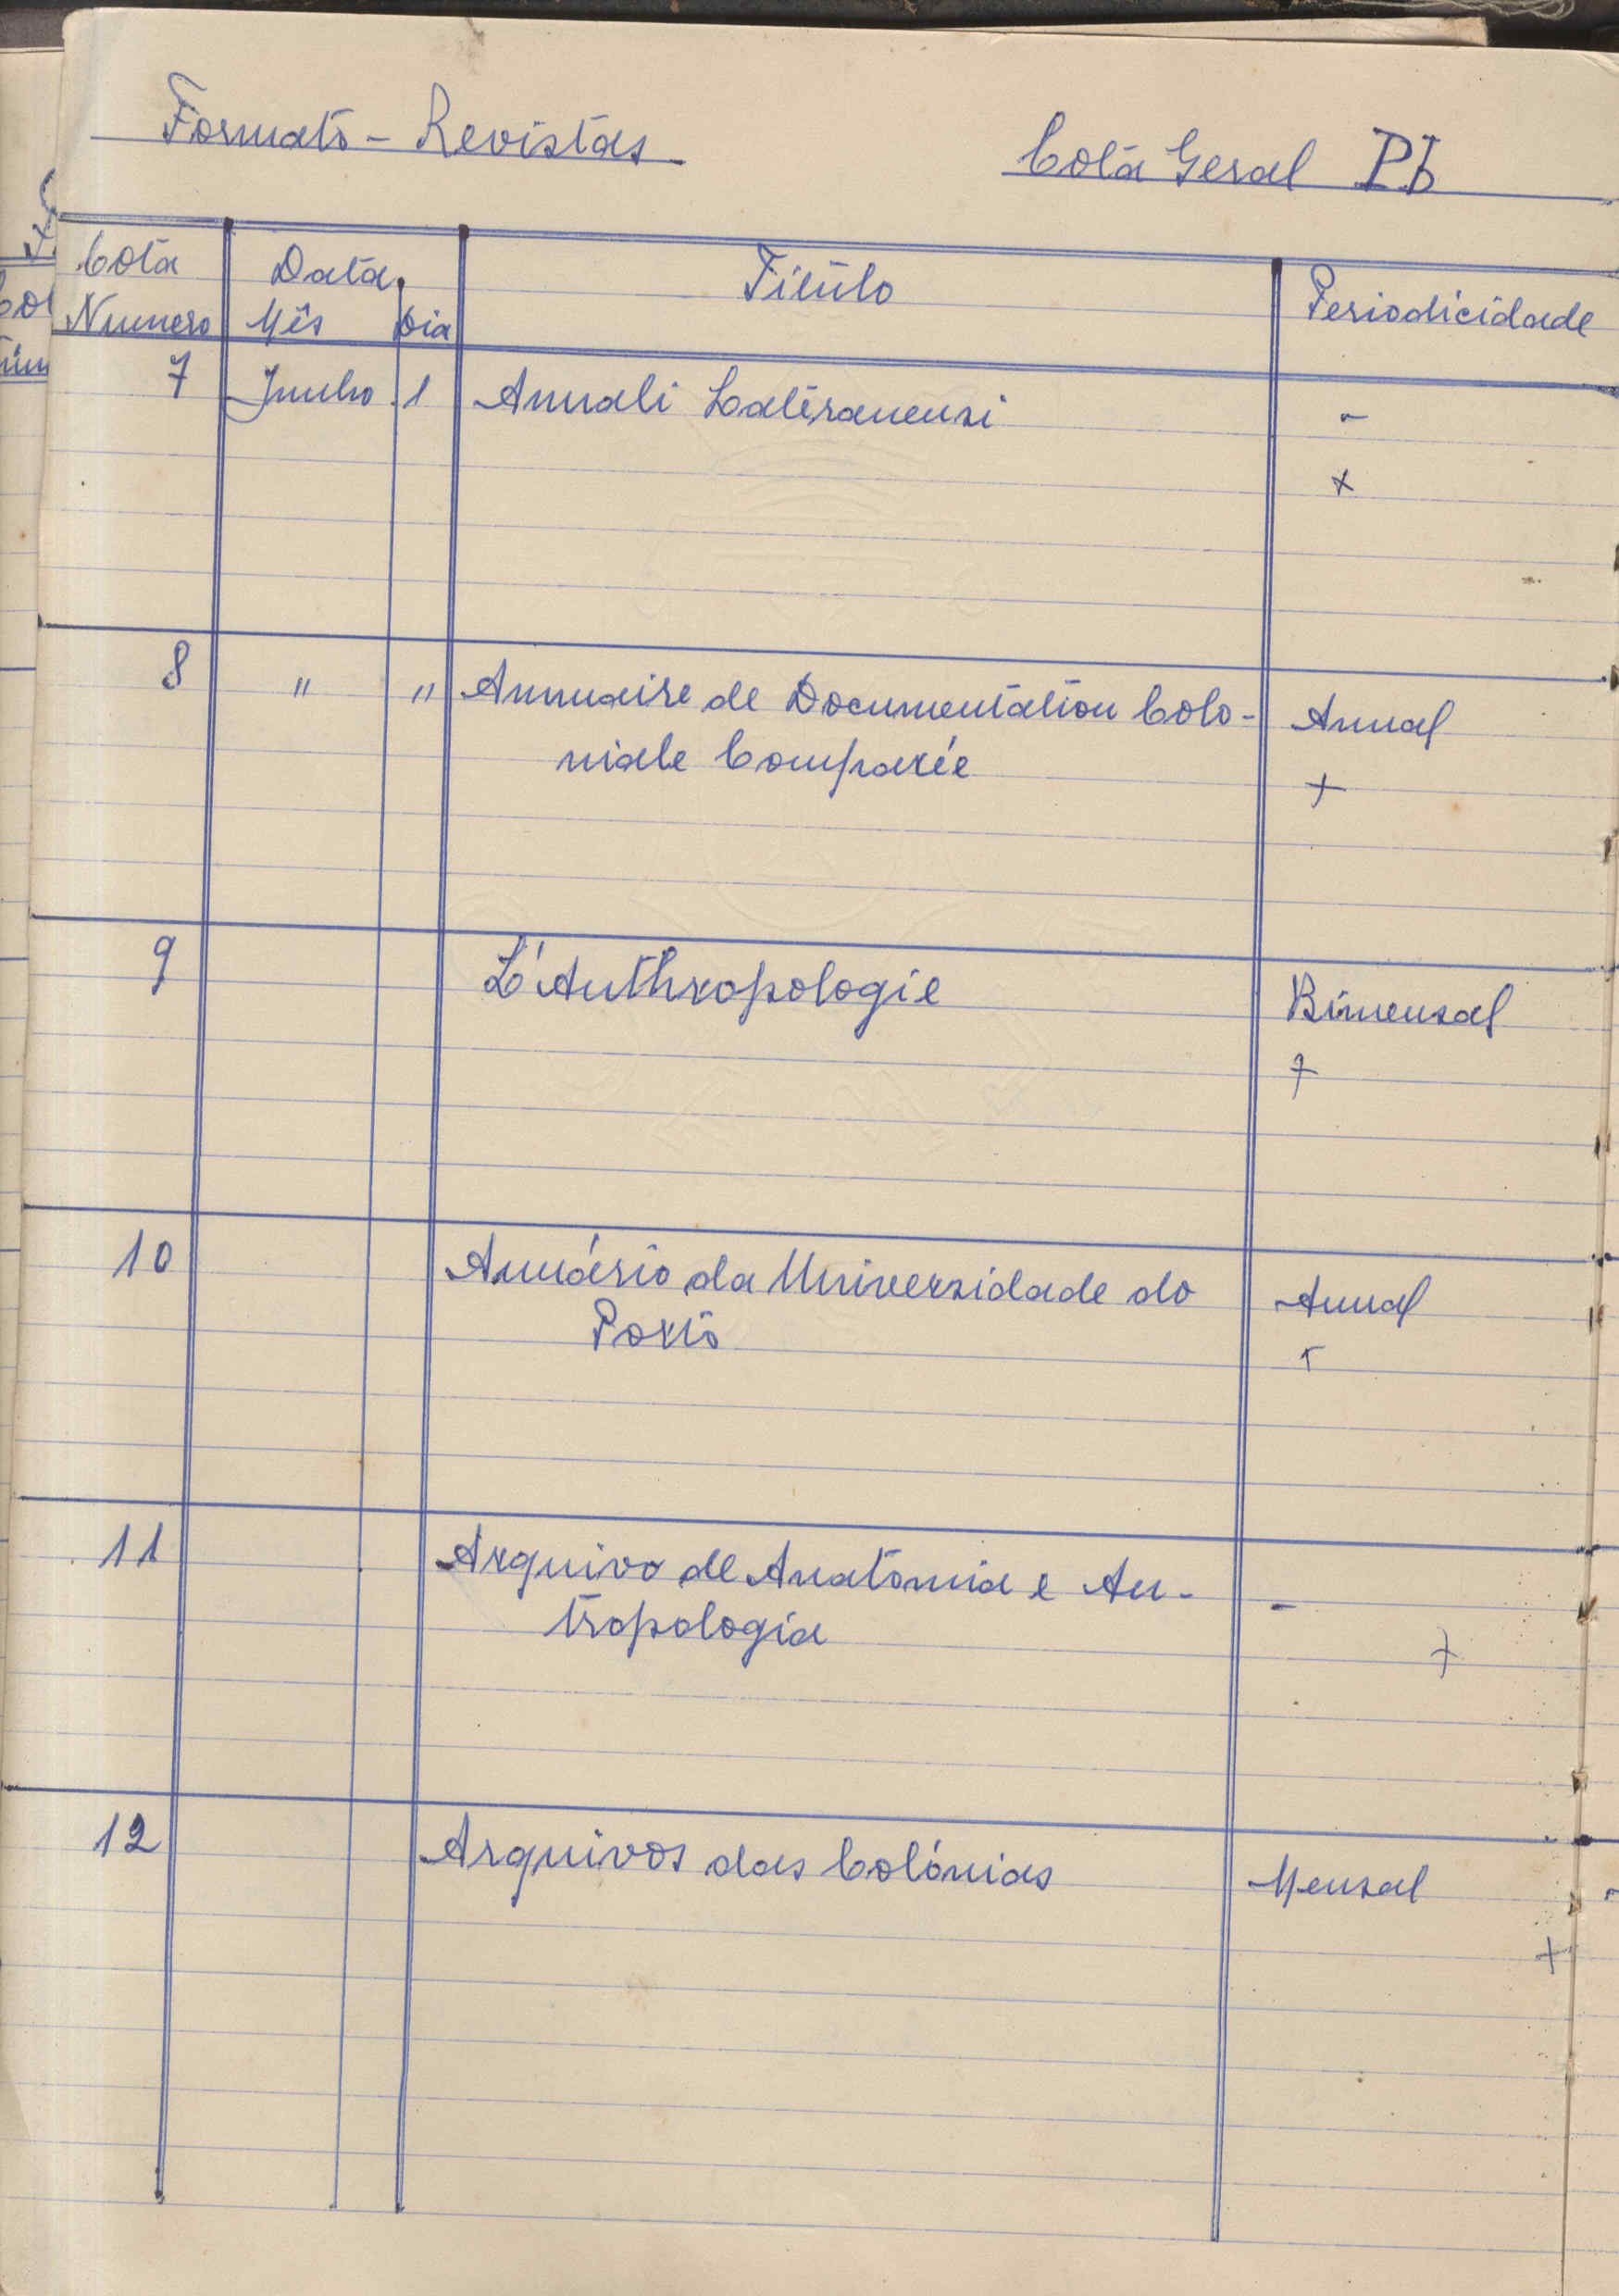 Formato - Revistas
Cota Geral Pb
Cota Data Titulo Periodicidade
Numero Mês Dia
7 Junho 1 Annali Lateranensi -
x
8 " " Annuaire de Documentation Colo- Anual
niale Comparée
+
9 L'Anthropologie Bimensal
+
10 Anuário da Universidade do Anual
Porto
11 Arquivo de Anatomia e An- -
tropologia
+
12 Arquivos das Colónias Mensal
+